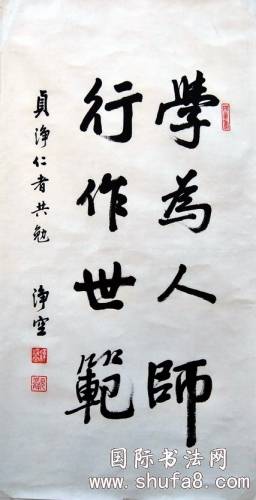 學為人師
行作世範
貞淨仁者共勉
淨空
国际书法网
www.shufa8.com